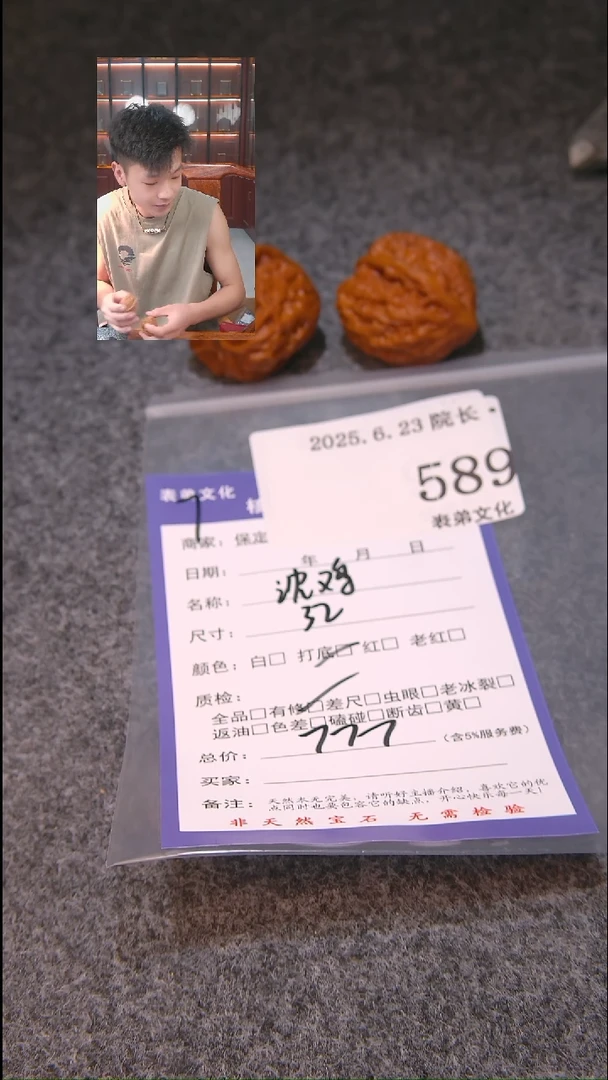 2025.6.23 院长·
589
表弟文化
表弟文化
7
商家：保定
日期：年 月 日
名称：沈鸡
尺寸：32
颜色：白□ 打底□ 红□ 老红□
质检：
全品□有修□差尺□虫眼□老冰裂□
返油□色差□磕碰□断齿□黄□
总价：777（含5%服务费）
买家：
备注：天然木无完美，请听好主播介绍，喜欢它的优
点同时也要包容它的缺点，开心快乐每一天！
非天然宝石 无需检验